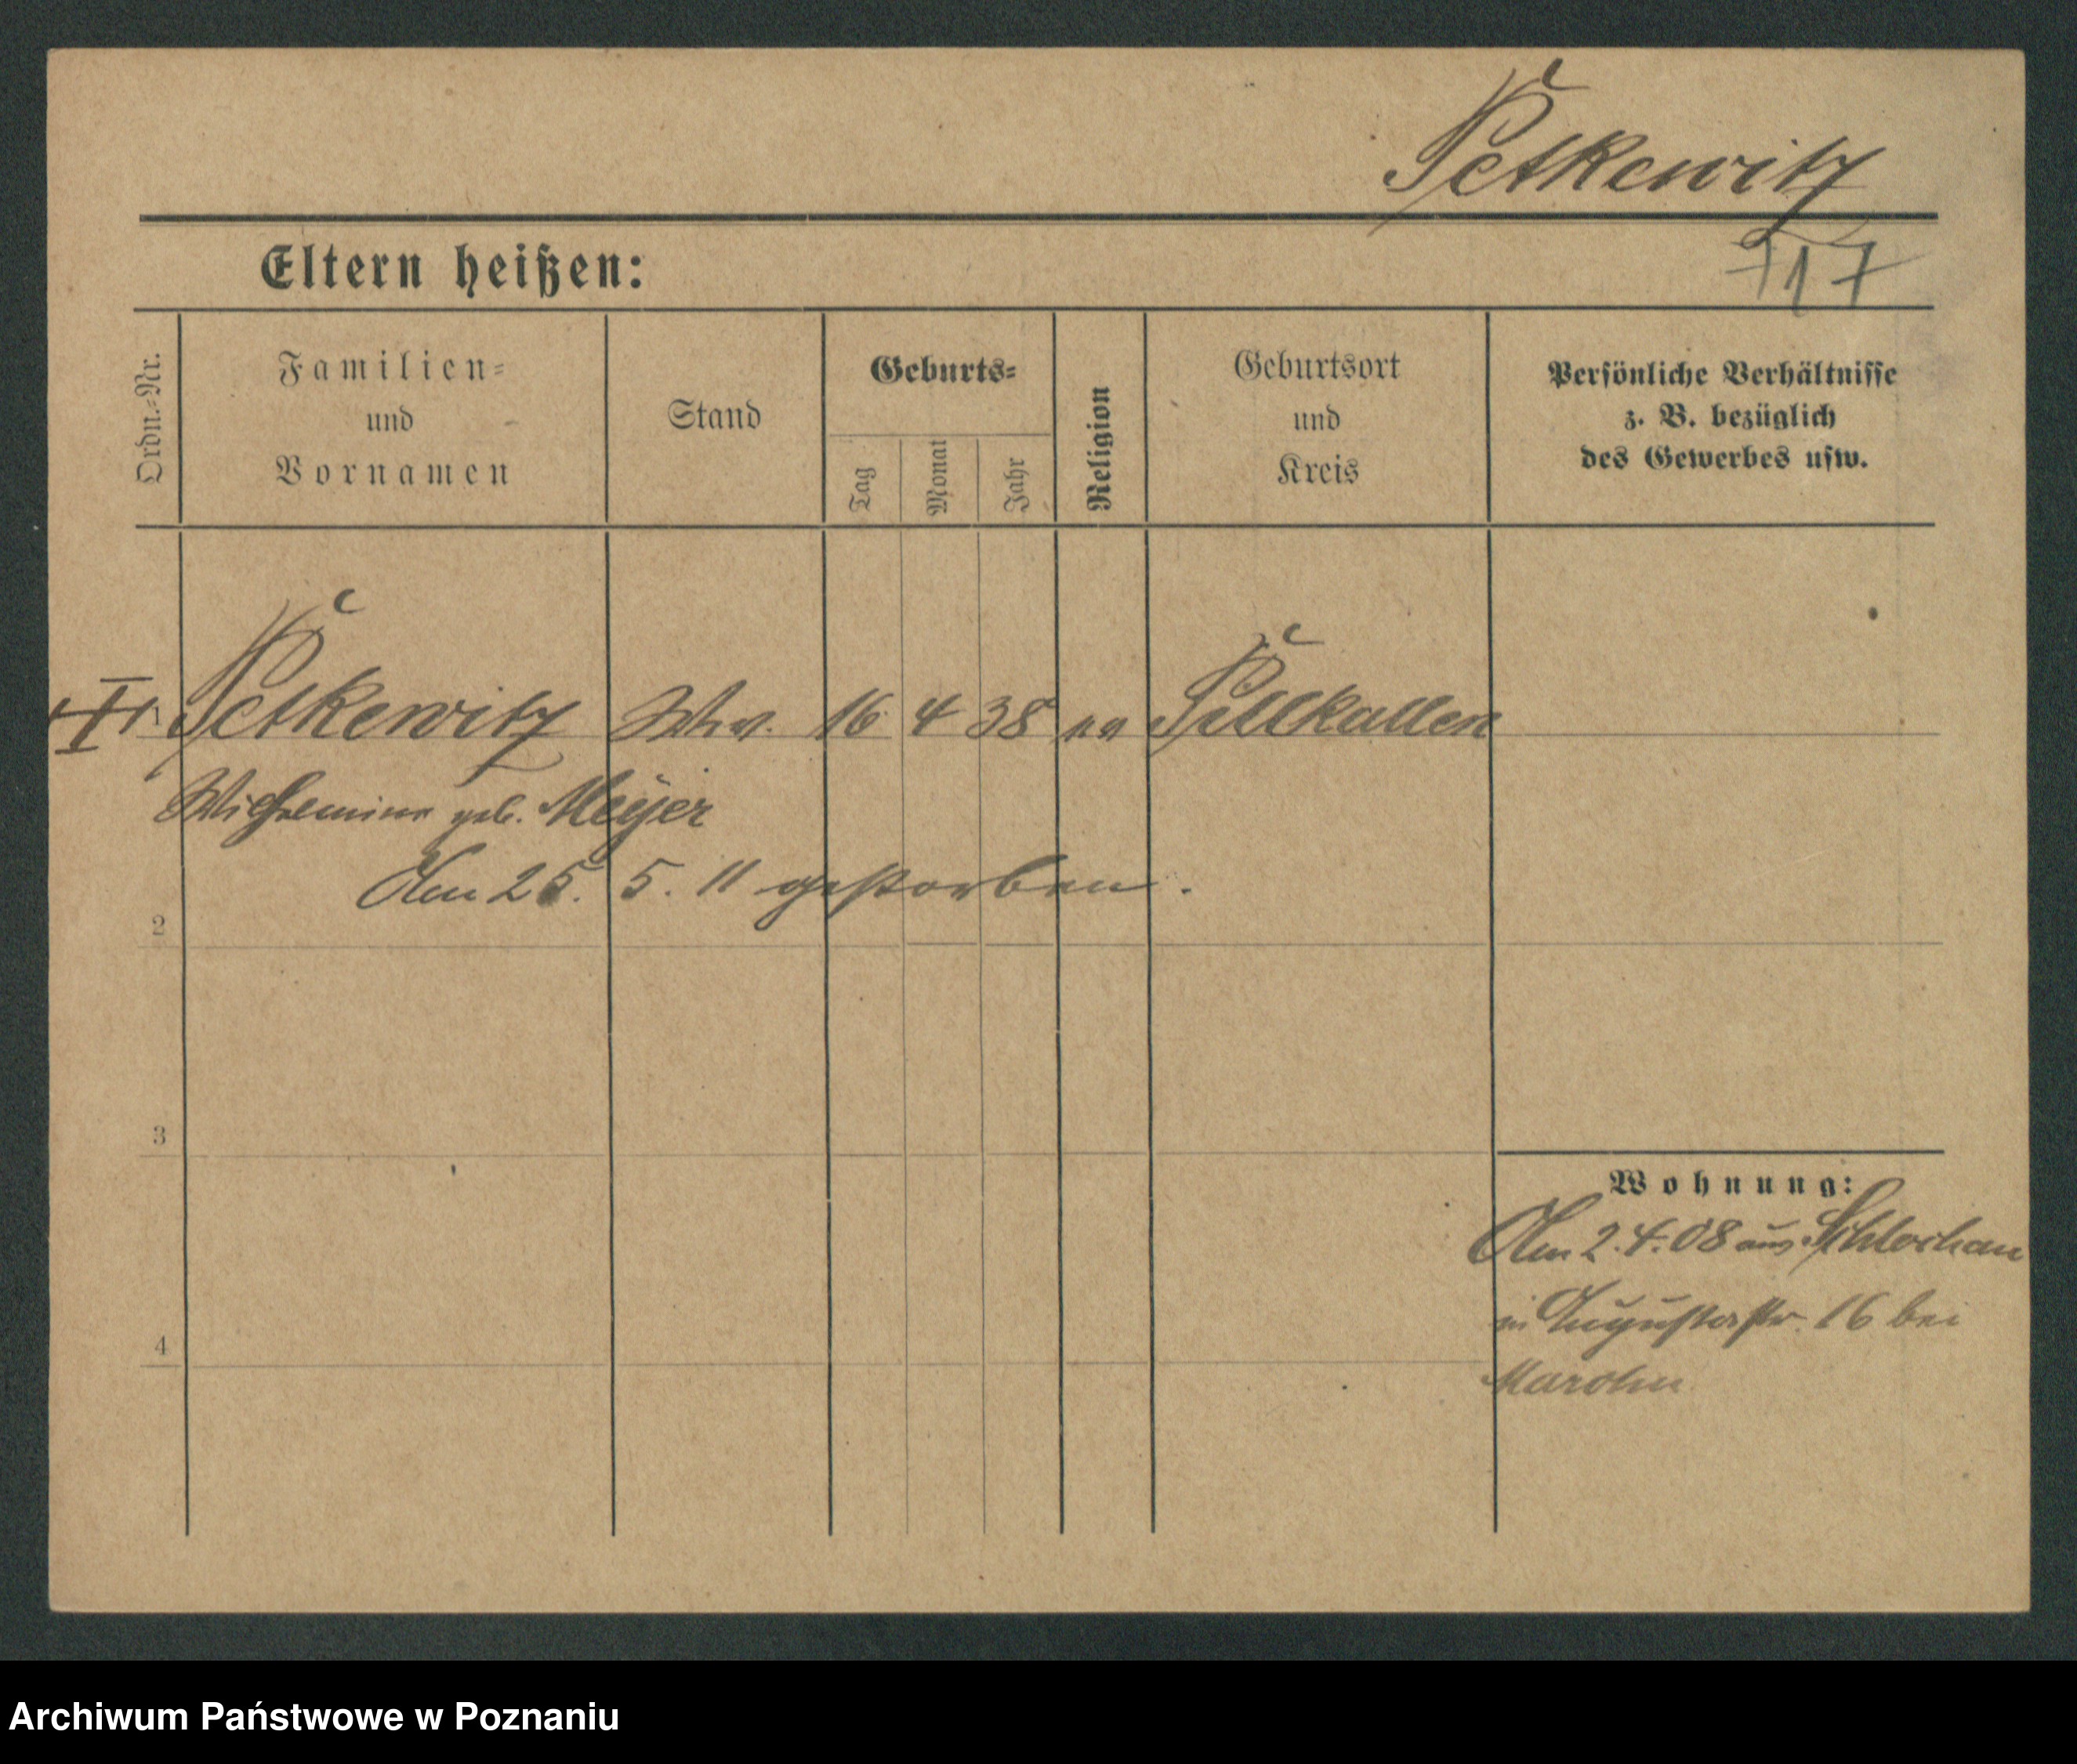 Petkewitz
Eltern heißen:
717
Ordn.-Nr.
Familien-
und
Vornamen
Stand
Geburts-
Tag
Monat
Jahr
Religion
Geburtsort
und
Kreis
Persönliche Verhältnisse
z. B. bezüglich
des Gewerbes usw.
Petkewitz Ww. 16 4 38 ev Pillkallen
Wilhelmine geb. Meyer
Am 25. 5. 11 gestorben.
2
3
4
Wohnung:
Am 2.4.08 aus Schlochau
in Augustastr. 16 bei
Marohn
Archiwum Państwowe w Poznaniu